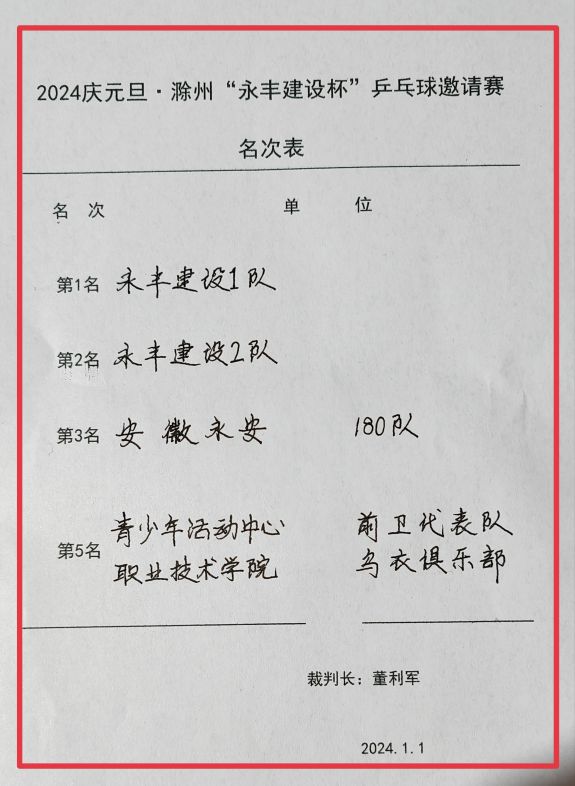 2024庆元旦·滁州“永丰建设杯”乒乓球邀请赛
名次表
名 次 单 位
第1名 永丰建设1队
第2名 永丰建设2队
第3名 安徽永安 180队
第5名 青少年活动中心 前卫代表队
职业技术学院 乌衣俱乐部
裁判长：董利军
2024.1.1